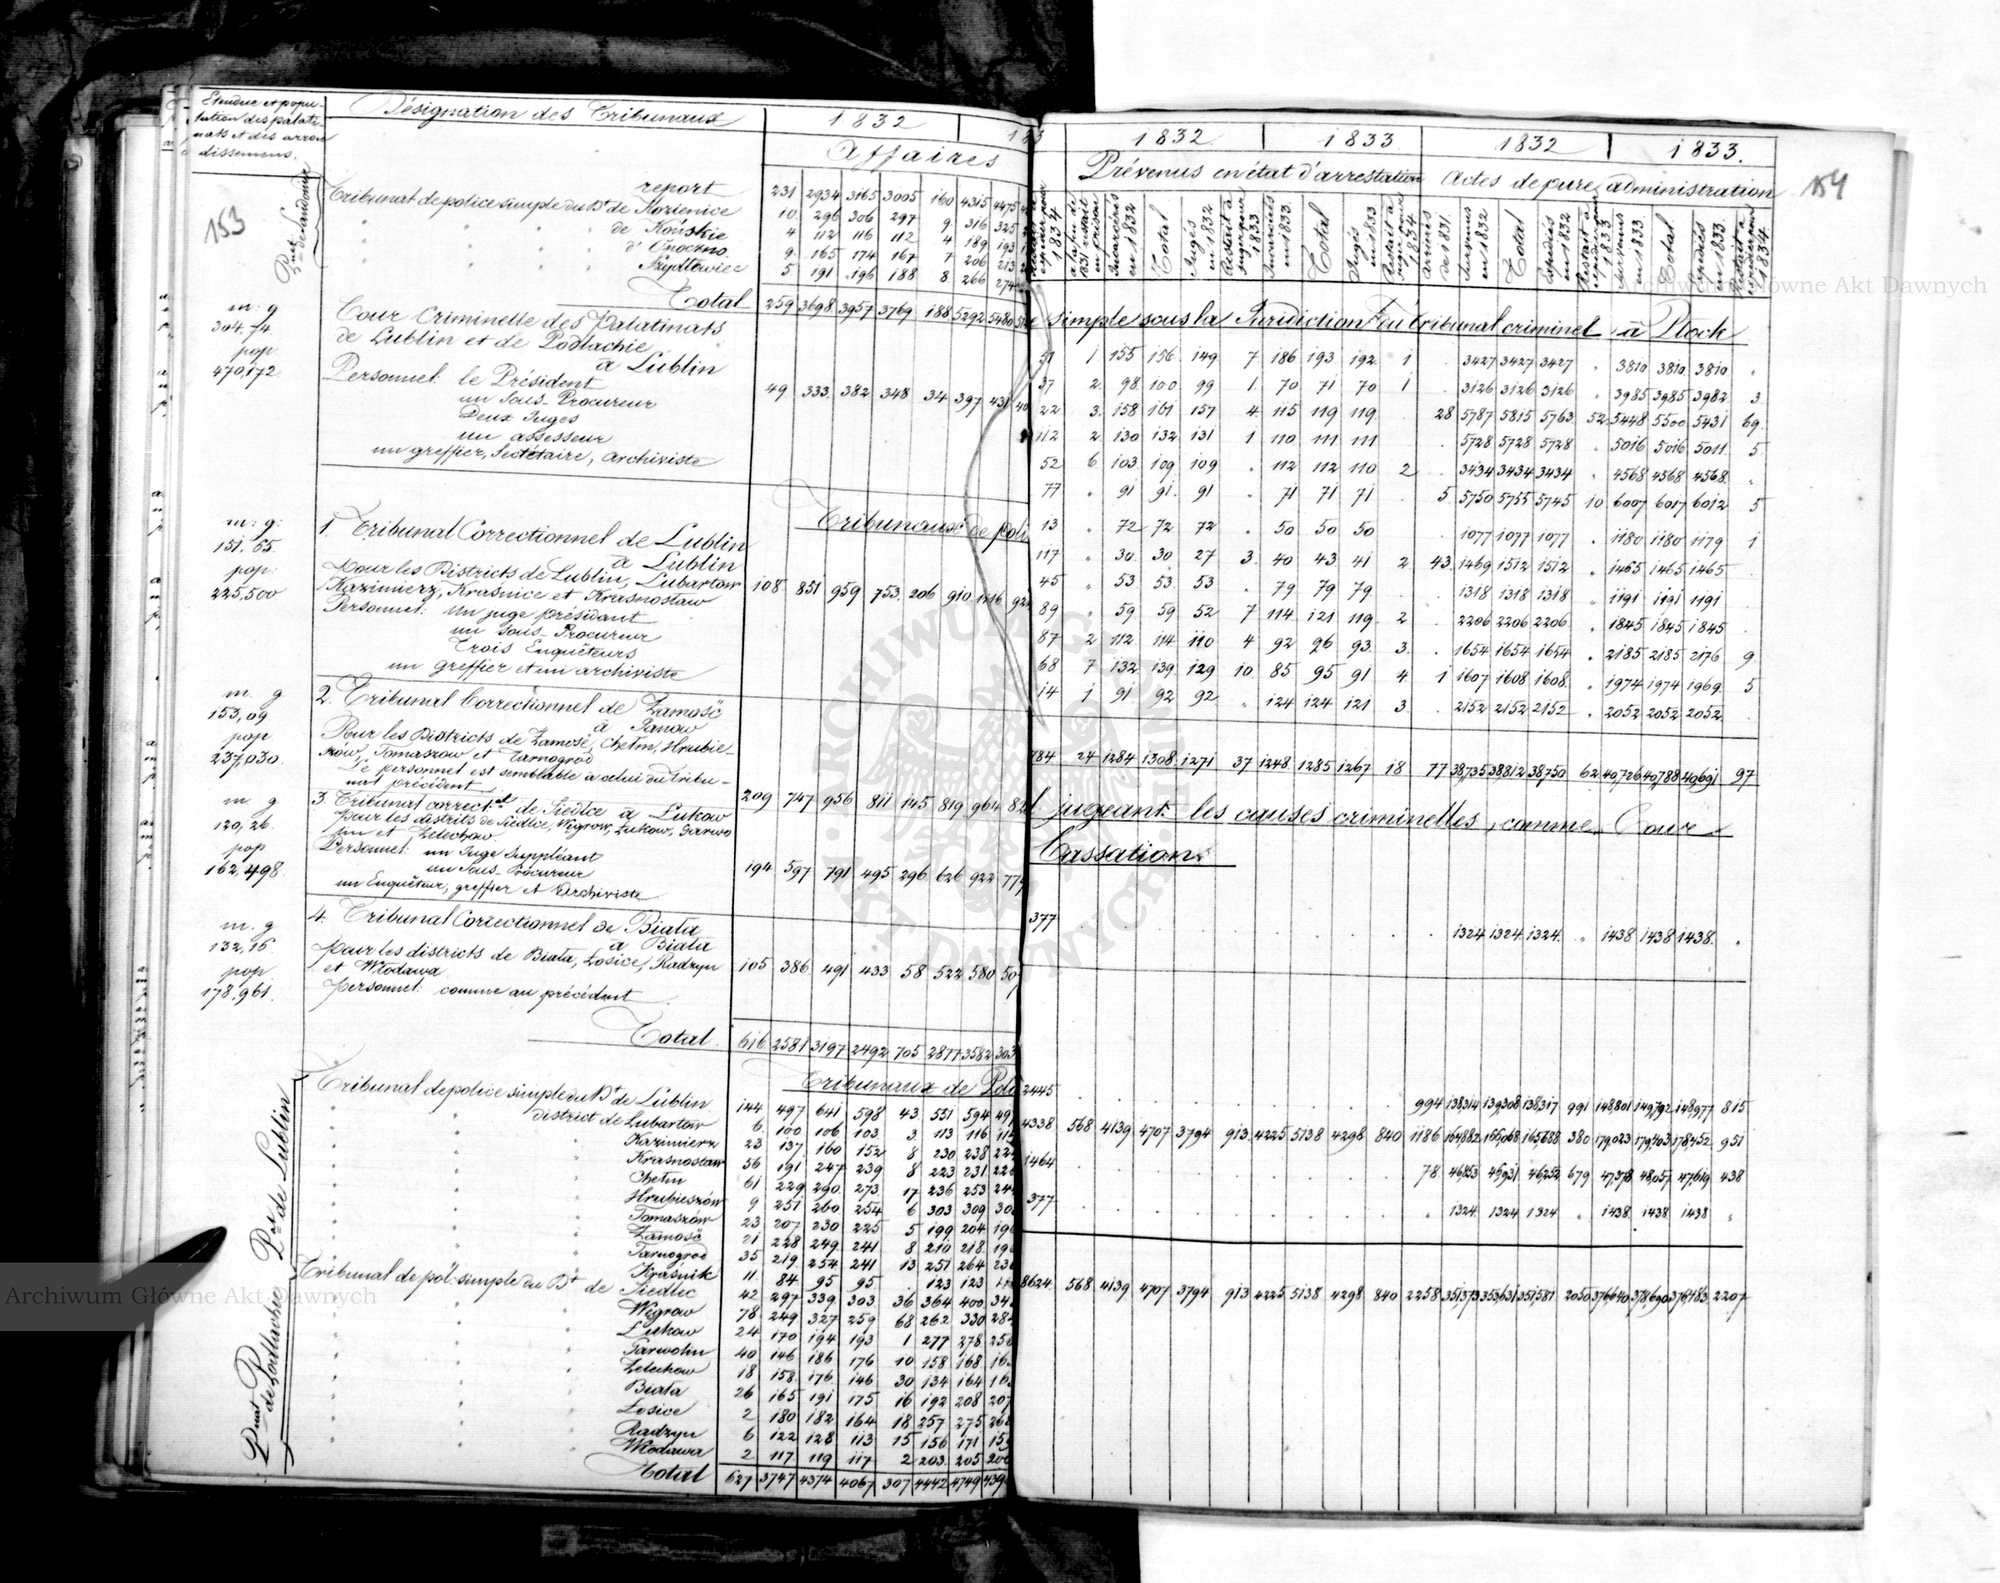 Etendue et popu-
lation des palati-
nats et des arron
dissemens.
Désignation des Tribunaux
1832
183
Affaires
153
Pnat
de Sandomir
report 231 2934 3165 3005 160 4315 4475
Tribunal de police simple du Dt de Kozienice 10 296 306 297 9 316 325
de Konskie 4 112 116 112 4 189 193
d'Opoczno 9 165 174 167 7 206 213
Szydłowiec 5 191 196 188 8 266 274
Total 259 3698 3957 3769 188 5292 5480
m: g
304,74
pop
470,172
Cour Criminelle des Palatinats
de Lublin et de Podlachie
à Lublin
Personnel: le Président 49 333 382 348 34 397 431
un Sous-Procureur
Deux Juges
un assesseur
un greffier, Secrétaire, archiviste
Tribunaux de poli
m: g:
151,65
pop:
225,500
1. Tribunal Correctionnel de Lublin
à Lublin
Pour les Districts de Lublin, Lubartow
Kazimierz, Krasnice et Krasnostaw 108 851 959 753 206 910 1116
Personnel: Un juge président
un Sous-Procureur
Trois Enquêteurs
un greffier et un archiviste
m. g
153,09
pop
237,030
2. Tribunal Correctionnel de Zamość
à Janow
Pour les Districts de Zamość, Chełm, Hrubie-
szów, Tomaszow et Tarnogrod
Le personnel est semblable à celui du Tribu-
nal précédent 209 747 956 811 145 819 964
m. g
120,26
pop
162,498
3. Tribunal correct.el de Siedlce à Łukow
pour les districts de Siedlce, Węgrow, Łukow, Garwo
lin et Żelechow
Personnel: un Juge Suppléant
un Sous-Procureur 194 597 791 495 296 626 922
un Enquêteur, greffier et Archiviste
m. g
132,16
pop
178,961
4. Tribunal Correctionnel de Biała
à Biała
pour les districts de Biała, Łosice, Radzyn
et Włodawa 105 386 491 433 58 522 580
Personnel: comme au précédent
Total 616 2581 3197 2492 705 2877 3582
Tribunaux de Poli
Pnat de Podlachie Pnat de Lublin
Tribunal de police simple du Dt de Lublin 144 497 641 598 43 551 594
district de Lubartow 6 100 106 103 3 113 116
Kazimierz 23 137 160 152 8 230 238
Krasnostaw 56 191 247 239 8 223 231
Chełm 61 229 290 273 17 236 253
Hrubieszów 9 251 260 254 6 303 309
Tomaszów 23 207 230 225 5 199 204
Zamość 21 228 249 241 8 210 218
Tarnogrod 35 219 254 241 13 251 264
Kraśnik 11 84 95 95 . 123 123
Tribunal de pol: simple du Dt de Siedlec 42 297 339 303 36 364 400
Węgrow 78 249 327 259 68 262 330
Łukow 24 170 194 193 1 277 278
Garwolin 40 146 186 176 10 158 168
Żelechow 18 158 176 146 30 134 164
Biała 26 165 191 175 16 192 208
Łosice 2 180 182 164 18 257 275
Radzyn 6 122 128 113 15 156 171
Włodawa 2 117 119 117 2 203 205
Total 627 3747 4374 4067 307 4442 4749
1832 1833 1832 1833.
154
Prévenus en état d'arrestation Actes de pure administration
simple sous la Juridiction du tribunal criminel à Płock
51 1 155 156 149 7 186 193 192 1 . 3427 3427 3427 " 3810 3810 3810 "
37 2 98 100 99 1 70 71 70 1 . 3126 3126 3126 " 3985 3985 3982 3
22 3 158 161 157 4 115 119 119 . 28 5787 5815 5763 52 5448 5500 5431 69
112 2 130 132 131 1 110 111 111 . 5728 5728 5728 " 5016 5016 5011 5
52 6 103 109 109 " 112 112 110 2 . 3434 3434 3434 " 4568 4568 4568 "
77 " 91 91 91 " 71 71 71 . 5 5750 5755 5745 10 6007 6017 6012 5
13 " 72 72 72 " 50 50 50 1077 1077 1077 " 1180 1180 1179 1
117 " 30 30 27 3 40 43 41 2 43 1469 1512 1512 " 1465 1465 1465
45 " 53 53 53 " 79 79 79 . 1318 1318 1318 " 1191 1191 1191
89 " 59 59 52 7 114 121 119 2 2206 2206 2206 " 1845 1845 1845
87 2 112 114 110 4 92 96 93 3 . 1654 1654 1654 " 2185 2185 2176 9
68 7 132 139 129 10 85 95 91 4 1 1607 1608 1608 " 1974 1974 1969 5
14 1 91 92 92 " 124 124 121 3 2152 2152 2152 " 2052 2052 2052
784 24 1284 1308 1271 37 1248 1285 1267 18 77 38,735 38,812 38,750 62 40,726 40,788 40,691 97
jugeant les causes criminelles, comme Cour
Cassation.
377 1324 1324 1324 " 1438 1438 1438 "
2445 994 138,314 139,308 138,317 991 148,801 149,792 148,977 815
4338 568 4139 4707 3794 913 4225 5138 4298 840 1186 164,882 166,068 165,688 380 179,023 179,403 178,452 951
1464 78 46,853 46,931 46,252 679 47,378 48,057 47,619 438
377 " 1324 1324 1324 " 1438 1438 1438 "
8624 568 4139 4707 3794 913 4225 5138 4298 840 2258 351,373 353,631 351,581 2050 376,640 378,690 376,483 2207
Archiwum Główne Akt Dawnych
Archiwum Główne Akt Dawnych